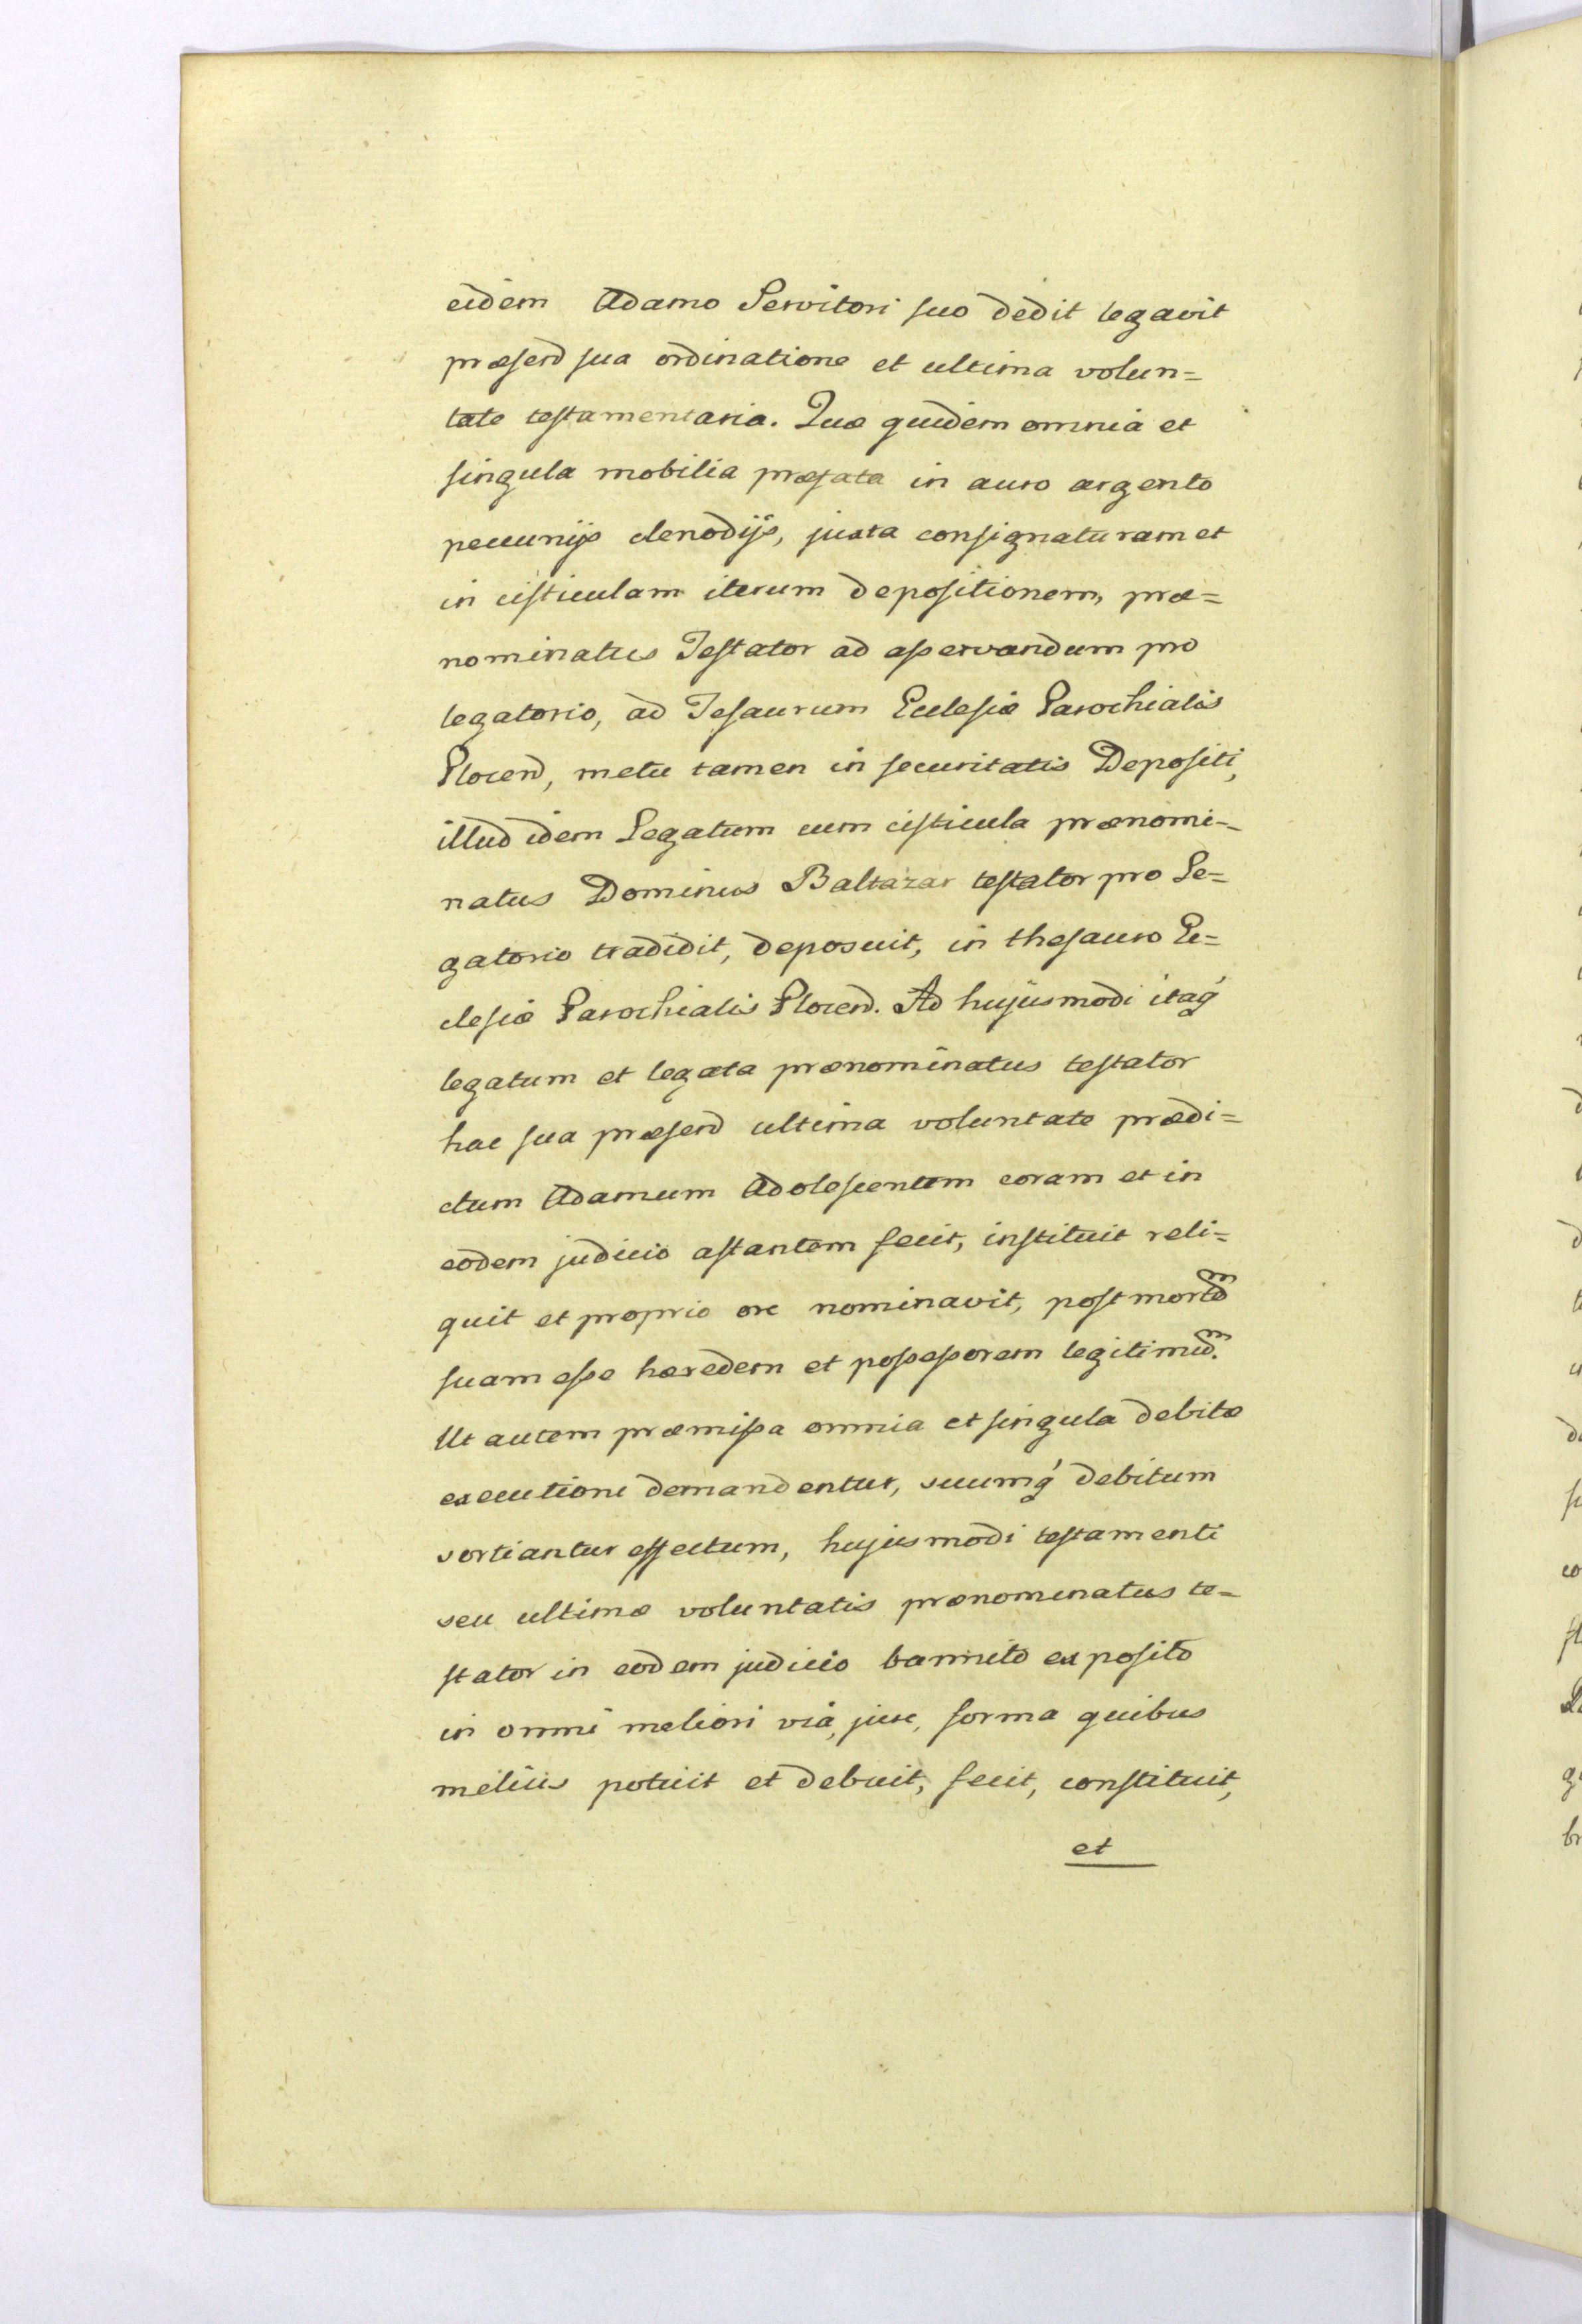 eidem Adamo Servitori suo dedit legavit
præsend sua ordinatione et ultima volun=
tate testamentaria. Quæ quidem omnia et
singula mobilia præfata in auro argento
pecunijs clenodijs, juxta consignaturam et
in cisticulam iterum depositionem, præ=
nominatus Testator ad asservandum pro
legatorio, ad Tesaurum Ecclesiæ Parochialis
Plocend, metu tamen in securitatis Depositi,
illud idem Legatum cum cisticula prænomi=
natus Dominus Baltazar testator pro Le=
gatorio tradidit, deposuit, in thesauro Ec=
clesiæ Parochialis Plocend. Ad hujusmodi itaq́
legatum et legata prænominatus testator
hac sua præsend ultima voluntate prædi=
ctum Adamum Adolescentem coram et in
eodem judicio astantem fecit, instituit reli=
quit et proprio ore nominavit, post mortem
suam esse hæredem et possessorem legitimum.
Ut autem præmissa omnia et singula debitæ
executioni demandentur, suumq́ debitum
sortiantur effectum, hujusmodi testamenti
seu ultimæ voluntatis prænominatus te=
stator in eodem judicio bannito exposito
in omni meliori viâ, jure, forma quibus
melius potuit et debuit, fecit, constituit,
et